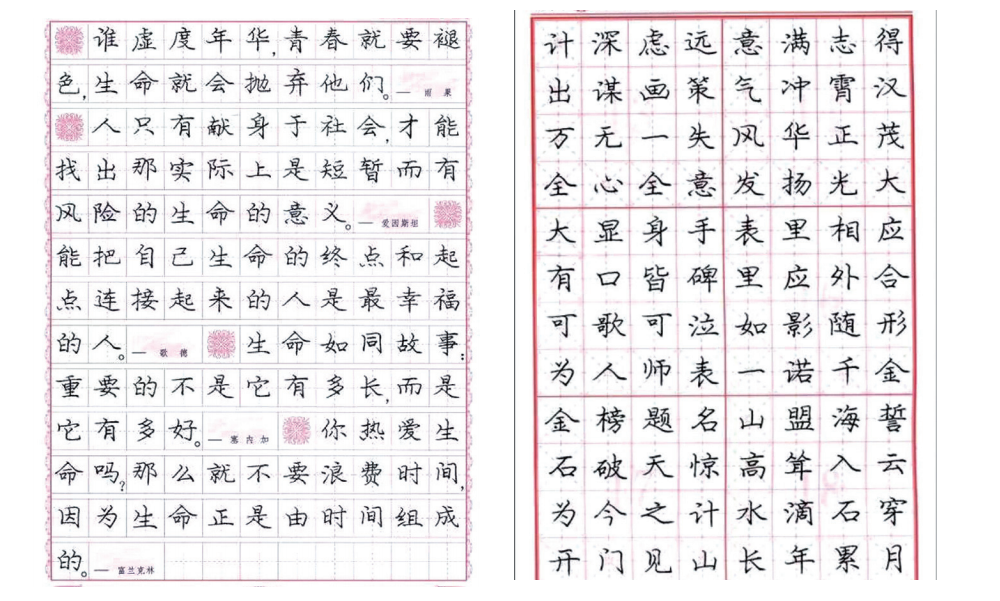 谁虚度年华,青春就要褪
色,生命就会抛弃他们。— 雨果
人只有献身于社会,才能
找出那实际上是短暂而有
风险的生命的意义。— 爱因斯坦
能把自己生命的终点和起
点连接起来的人是最幸福
的人。— 歌德 生命如同故事:
重要的不是它有多长,而是
它有多好。— 塞内加 你热爱生
命吗?那么就不要浪费时间,
因为生命正是由时间组成
的。— 富兰克林
计深虑远意满志得
出谋画策气冲霄汉
万无一失风华正茂
全心全意发扬光大
大显身手表里相应
有口皆碑里应外合
可歌可泣如影随形
为人师表一诺千金
金榜题名山盟海誓
石破天惊高耸入云
为今之计水滴石穿
开门见山长年累月